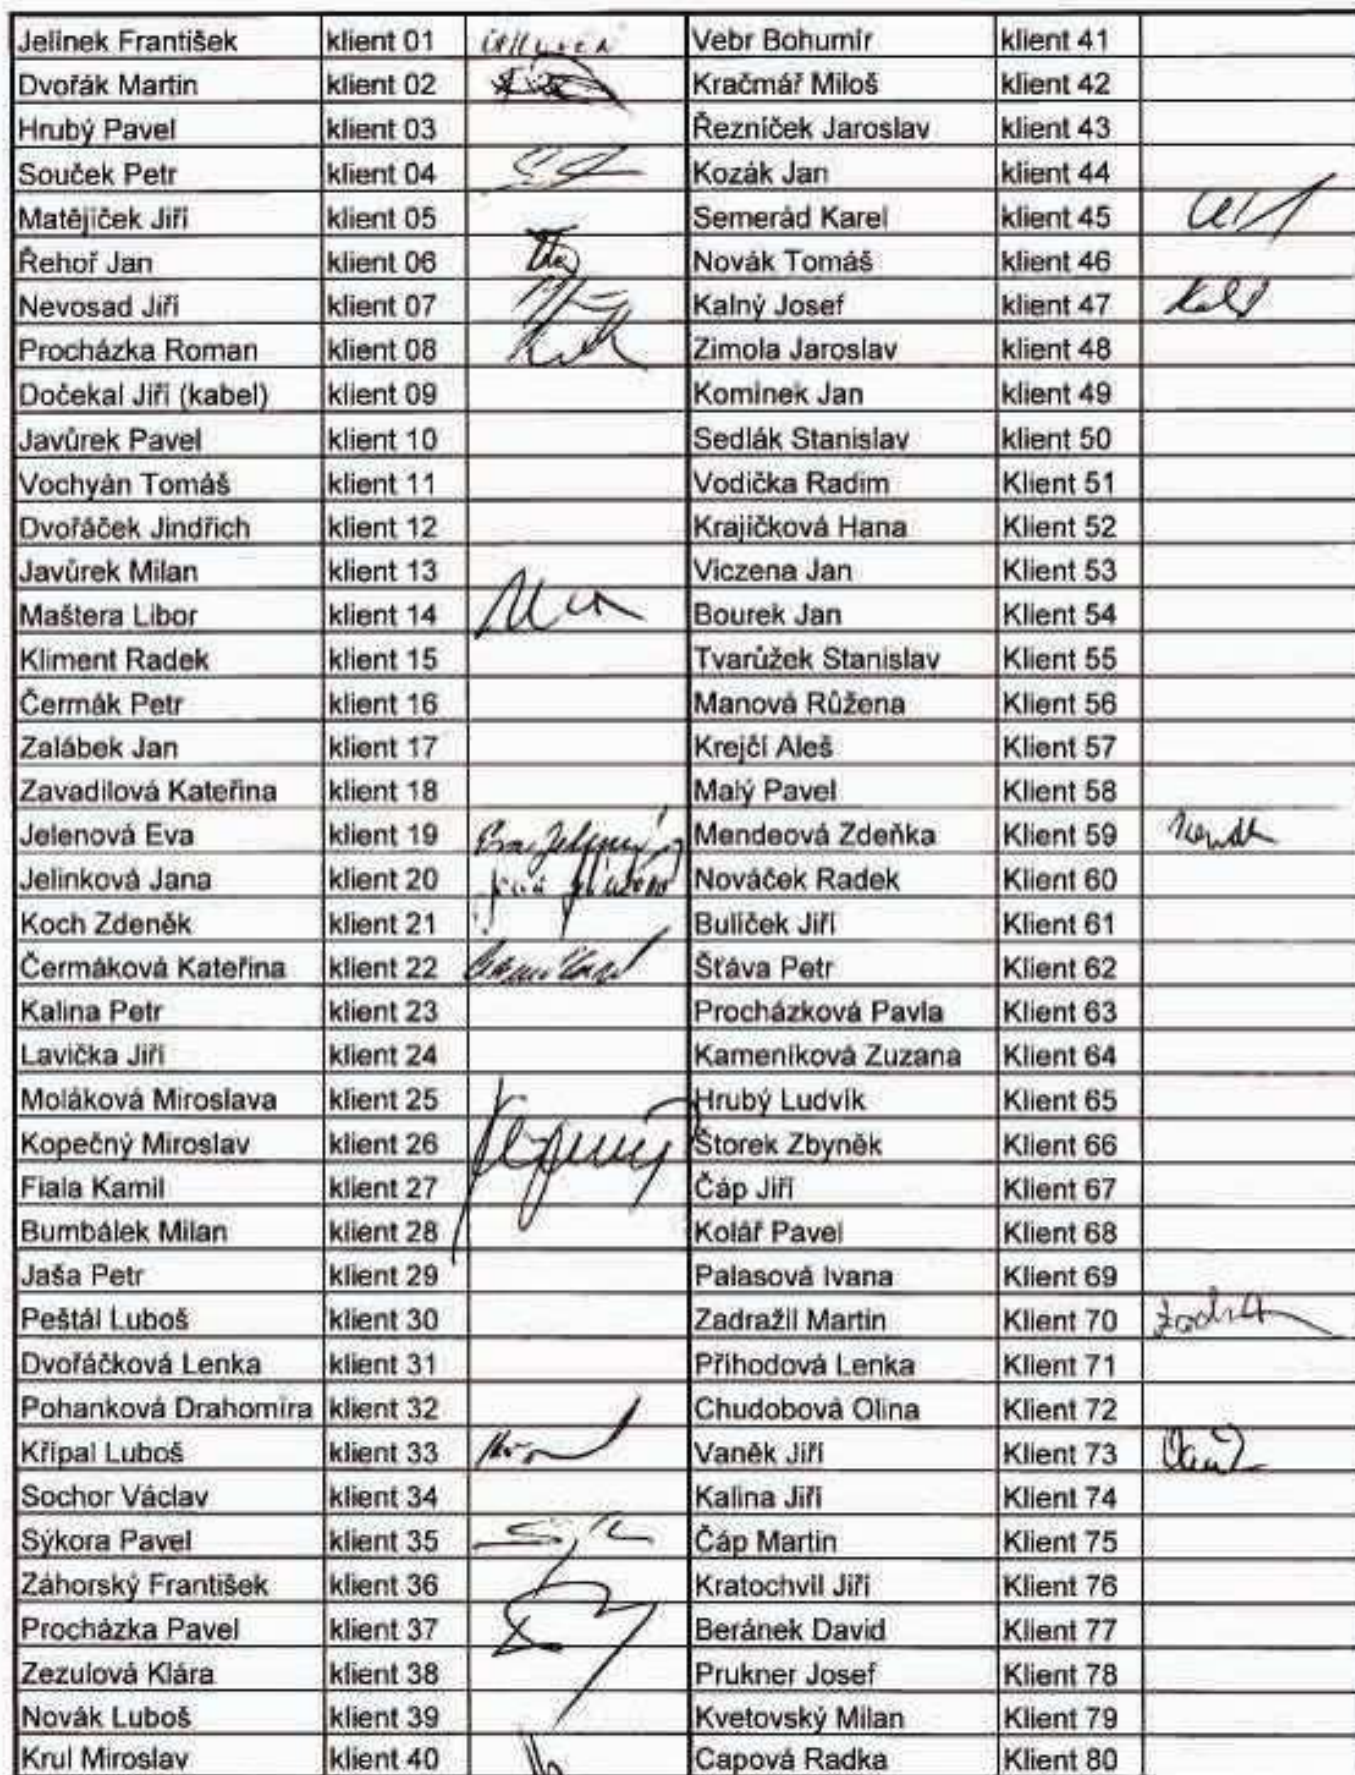 Jelínek František klient 01 Vebr Bohumír klient 41
Dvořák Martin klient 02 Kračmář Miloš klient 42
Hrubý Pavel klient 03 Řezníček Jaroslav klient 43
Souček Petr klient 04 Kozák Jan klient 44
Matějíček Jiří klient 05 Semerád Karel klient 45
Řehoř Jan klient 06 Novák Tomáš klient 46
Nevosad Jiří klient 07 Kalný Josef klient 47
Procházka Roman klient 08 Zimola Jaroslav klient 48
Dočekal Jiří (kabel) klient 09 Komínek Jan klient 49
Javůrek Pavel klient 10 Sedlák Stanislav klient 50
Vochyán Tomáš klient 11 Vodička Radim Klient 51
Dvořáček Jindřich klient 12 Krajíčková Hana Klient 52
Javůrek Milan klient 13 Viczena Jan Klient 53
Maštera Libor klient 14 Bourek Jan Klient 54
Kliment Radek klient 15 Tvarůžek Stanislav Klient 55
Čermák Petr klient 16 Manová Růžena Klient 56
Zalábek Jan klient 17 Krejčí Aleš Klient 57
Zavadilová Kateřina klient 18 Malý Pavel Klient 58
Jelenová Eva klient 19 Mendeová Zdeňka Klient 59
Jelínková Jana klient 20 Nováček Radek Klient 60
Koch Zdeněk klient 21 Bulíček Jiří Klient 61
Čermáková Kateřina klient 22 Šťáva Petr Klient 62
Kalina Petr klient 23 Procházková Pavla Klient 63
Lavička Jiří klient 24 Kameníková Zuzana Klient 64
Moláková Miroslava klient 25 Hrubý Ludvík Klient 65
Kopečný Miroslav klient 26 Štorek Zbyněk Klient 66
Fiala Kamil klient 27 Čáp Jiří Klient 67
Bumbálek Milan klient 28 Kolář Pavel Klient 68
Jaša Petr klient 29 Palasová Ivana Klient 69
Peštál Luboš klient 30 Zadražil Martin Klient 70
Dvořáčková Lenka klient 31 Příhodová Lenka Klient 71
Pohanková Drahomíra klient 32 Chudobová Olina Klient 72
Křípal Luboš klient 33 Vaněk Jiří Klient 73
Sochor Václav klient 34 Kalina Jiří Klient 74
Sýkora Pavel klient 35 Čáp Martin Klient 75
Záhorský František klient 36 Kratochvíl Jiří Klient 76
Procházka Pavel klient 37 Beránek David Klient 77
Zezulová Klára klient 38 Prukner Josef Klient 78
Novák Luboš klient 39 Kvetovský Milan Klient 79
Krul Miroslav klient 40 Capová Radka Klient 80